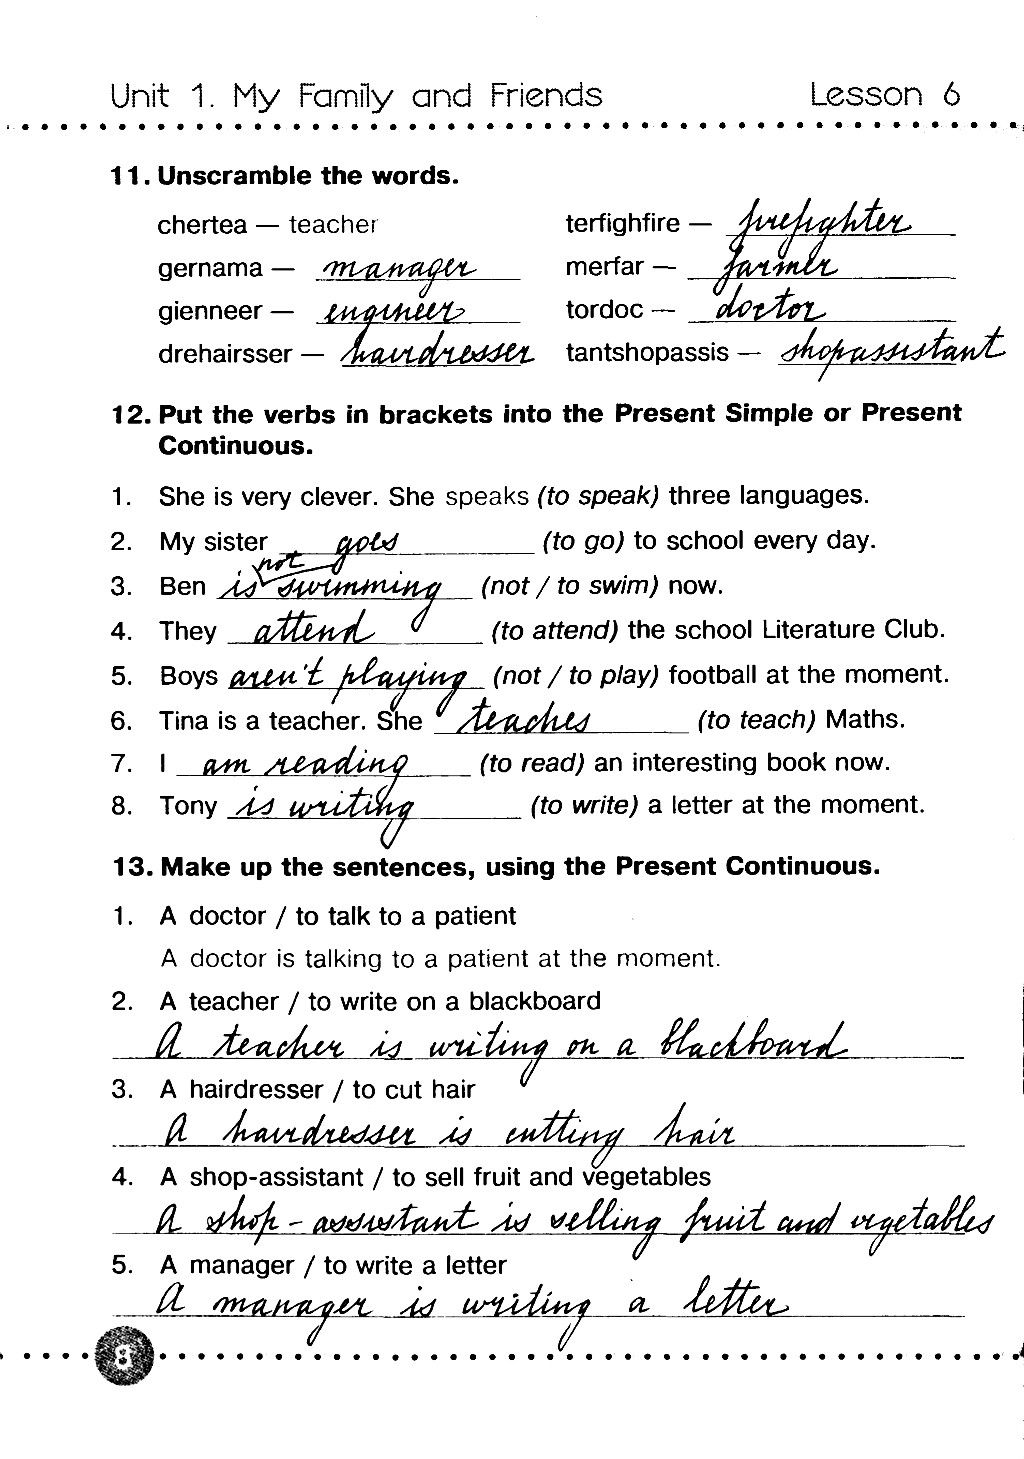 Unit 1. My Family and Friends Lesson 6
11. Unscramble the words.
chertea — teacher terfighfire — firefighter
gernama — manager merfar — farmer
gienneer — engineer tordoc — doctor
drehairsser — hairdresser tantshopassis — shopassistant
12. Put the verbs in brackets into the Present Simple or Present
Continuous.
1. She is very clever. She speaks (to speak) three languages.
2. My sister goes (to go) to school every day.
3. Ben is not swimming (not / to swim) now.
4. They attend (to attend) the school Literature Club.
5. Boys aren't playing (not / to play) football at the moment.
6. Tina is a teacher. She teaches (to teach) Maths.
7. I am reading (to read) an interesting book now.
8. Tony is writing (to write) a letter at the moment.
13. Make up the sentences, using the Present Continuous.
1. A doctor / to talk to a patient
A doctor is talking to a patient at the moment.
2. A teacher / to write on a blackboard
A teacher is writing on a blackboard
3. A hairdresser / to cut hair
A hairdresser is cutting hair
4. A shop-assistant / to sell fruit and vegetables
A shop-assistant is selling fruit and vegetables
5. A manager / to write a letter
A manager is writing a letter
8